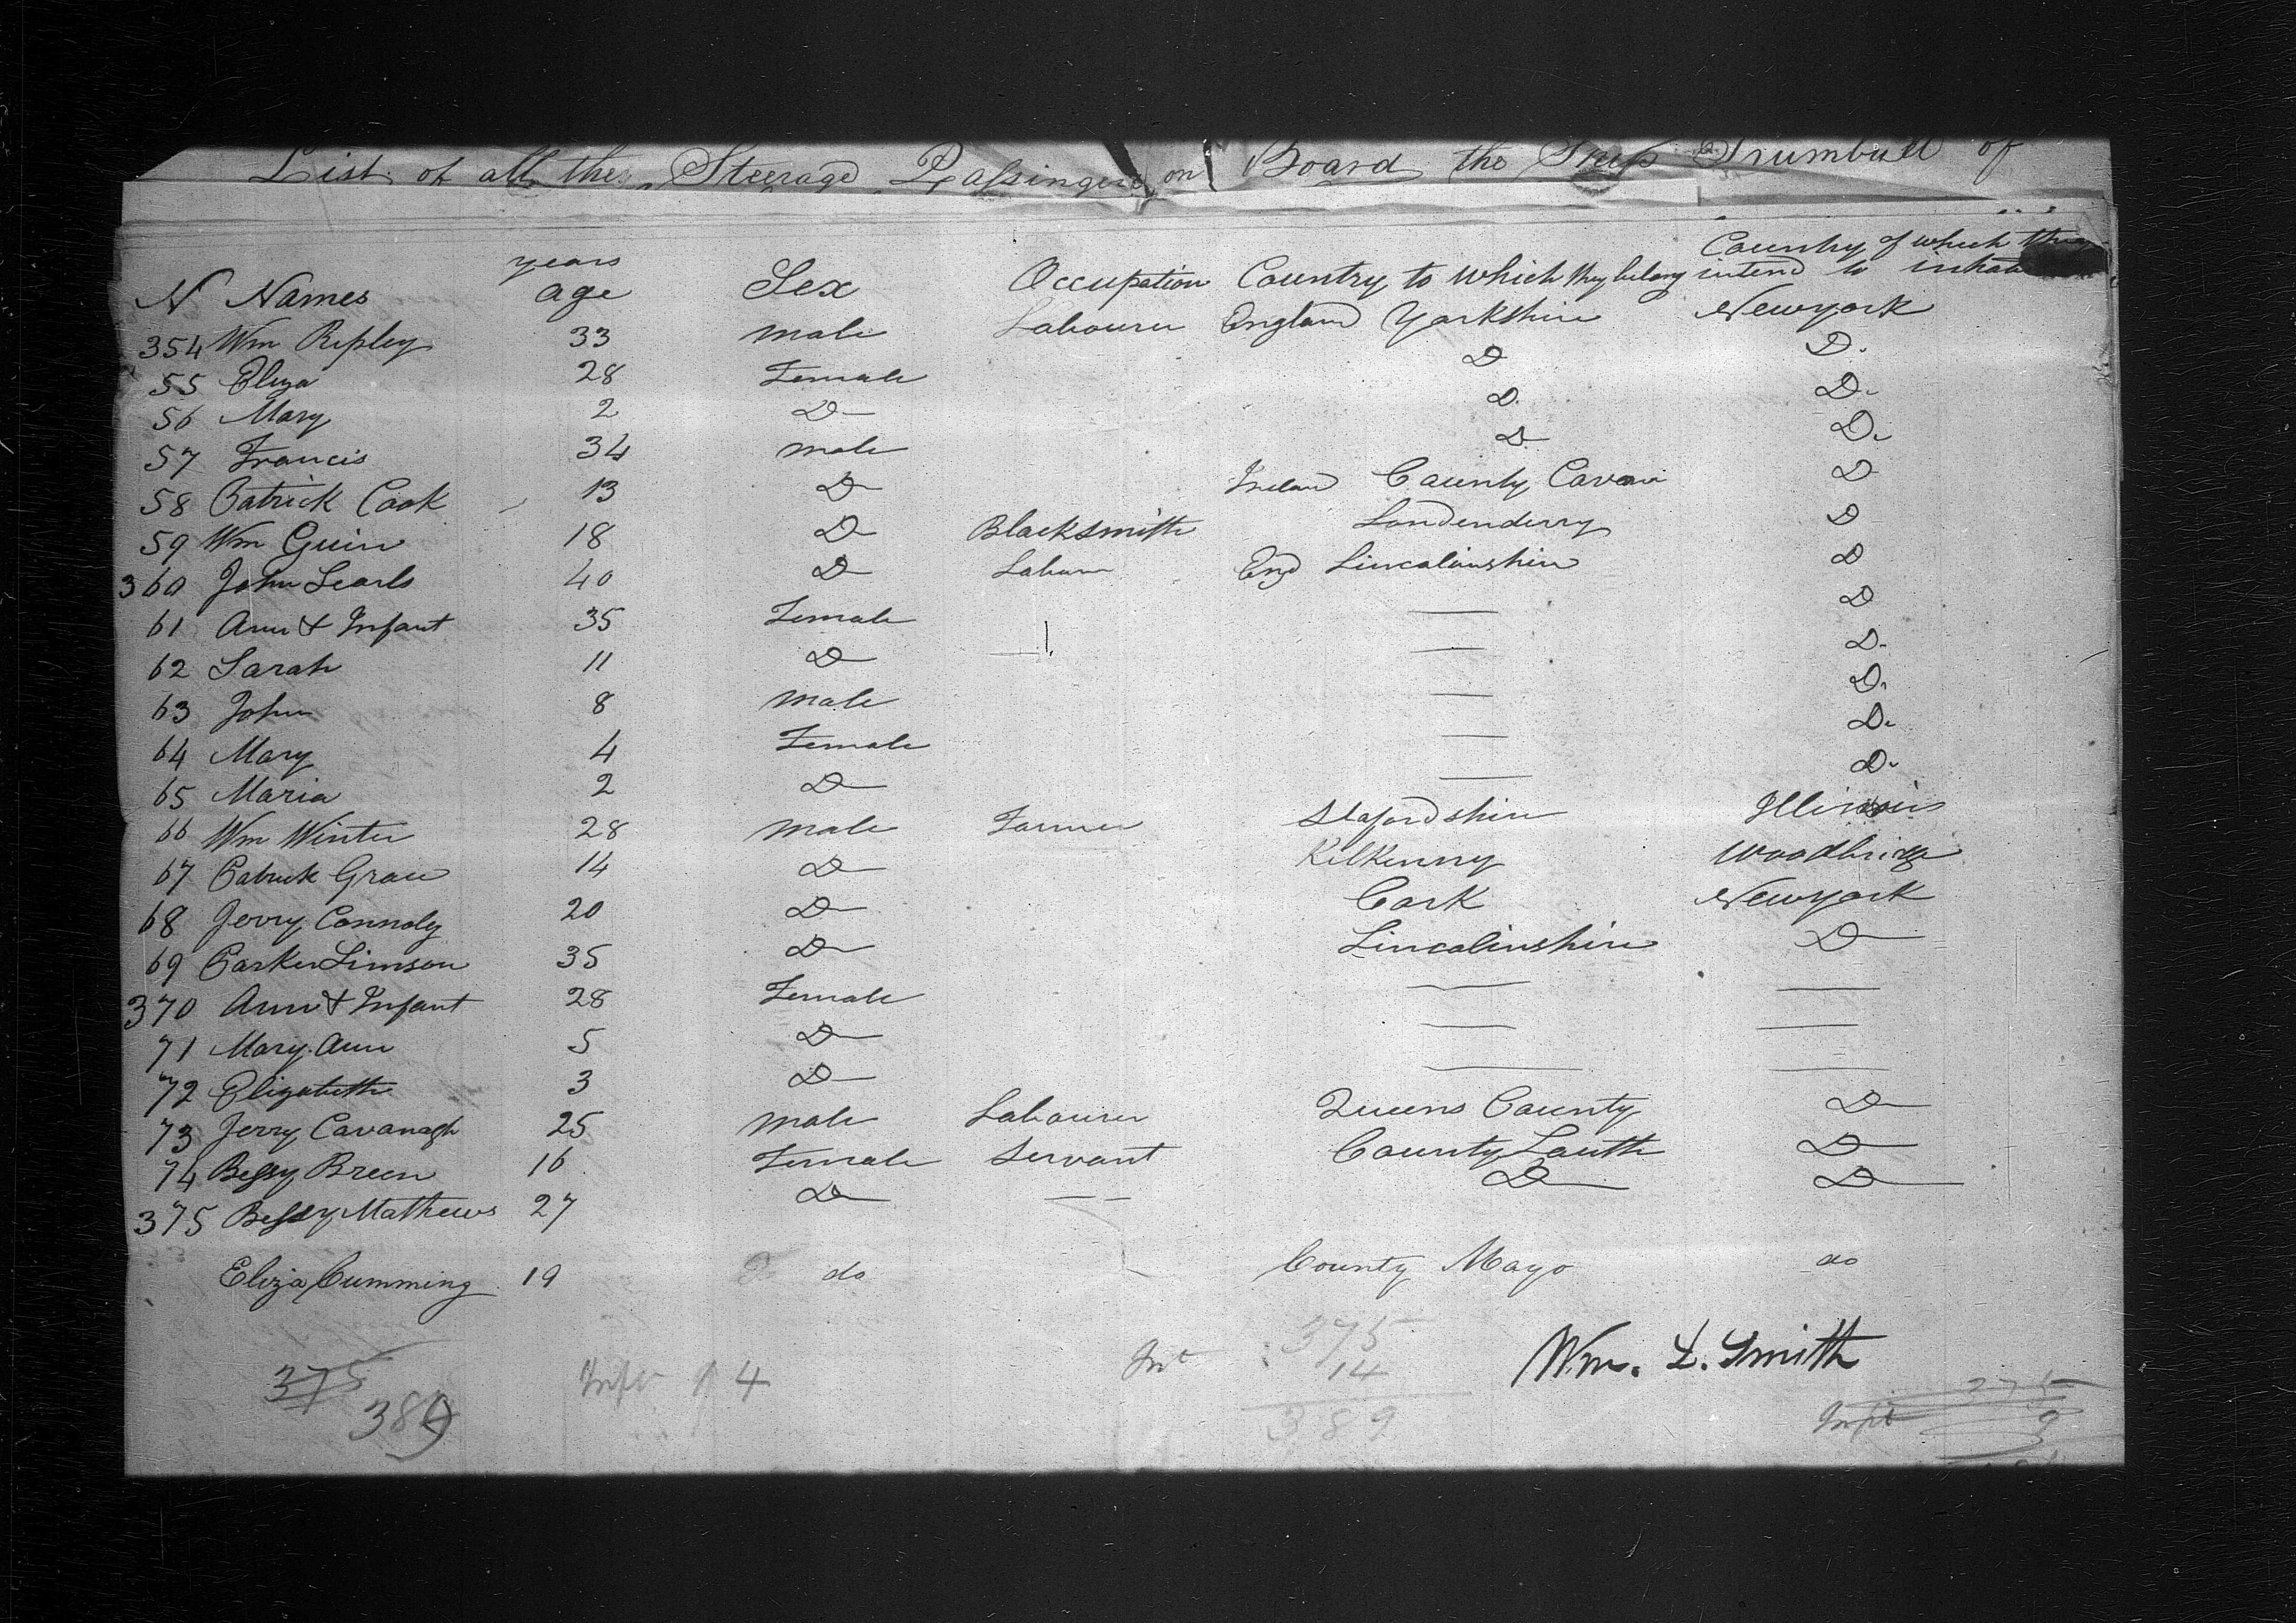 List of all the Steerage Passingers on Board the Ship Trumbull of
N Names years age Sex Occupation Country to which they belong Country of which they intend to inhabit
354 Wm Ripley 33 male Labourer England Yorkshire Newyork
55 Eliza 28 Female D D.
56 Mary 2 D D. D.
57 Francis 34 male D D.
58 Patrick Cook 13 D Ireland County Cavan D
59 Wm Guin 18 D Blacksmith Londenderry D
360 John Searls 40 D Labour End Lincolinshire D
61 Ann & Infant 35 Female — D
62 Sarah 11 D — D.
63 John 8 male — D.
64 Mary 4 Female — D.
65 Maria 2 D — D.
66 Wm Winter 28 male Farmer Stafordshire Illinois
67 Patrick Grace 14 D Kilkenny Woodbridge
68 Jerry Connoly 20 D Cork Newyork
69 Parker Simson 35 D Lincolinshire D
370 Ann & Infant 28 Female — —
71 Mary Ann 5 D — —
72 Elizabeth 3 D — —
73 Jerry Cavanagh 25 male Labourer Queens County D
74 Bessy Breen 16 Female Servant County Louth D
375 Bessy Mathews 27 D — — D D
Eliza Cumming 19 do County Mayo do
Wm. L. Smith
375
389
14
Inf 375
14
389
Inft 9